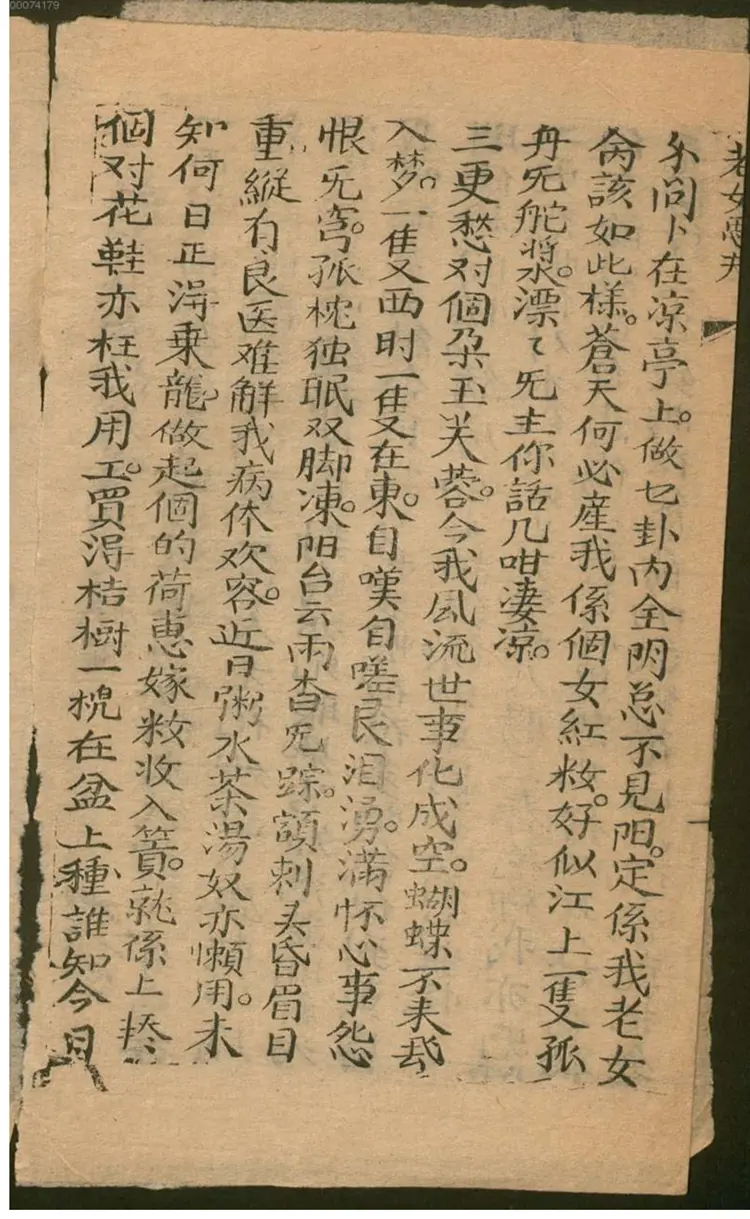 00074179
老女思夫
系問卜在凉亭上。做乜卦內全阴总不見阳。定係我老女
命該如此様。蒼天何必産我係個女紅粧。好似江上一隻孤
舟旡舵漿。漂〻旡主你話几咁凄凉。
三更愁对個朶玉芙蓉。今我风流世事化成空。蝴蝶不来我
入梦。一隻西时一隻在東。自嘆自嗟艮泪湧。满怀心事怨
恨旡穷。孤枕独眠双脚凍。阳台云雨杳旡踪。額刺头昏眉目
重縱有良医难解我病休欢容。近日粥水茶湯奴亦懶用。未
知何日正淂乗龍。做起個的荷惠嫁粧收入篢。就係上
個对花鞋亦枉我用工。買淂桔樹一桄在盆上種誰知今日